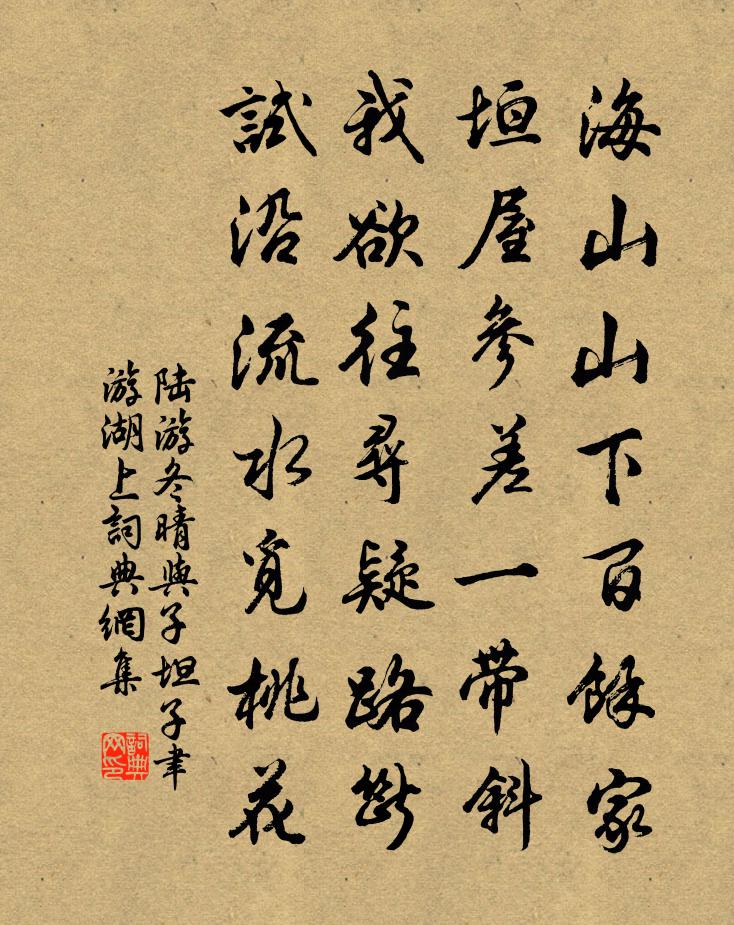 海山山下百餘家
垣屋參差一帶斜
我欲往尋疑路斷
試沿流水覓桃花
陆游冬晴與子坦子聿
游湖上詞典網集
詞典網印